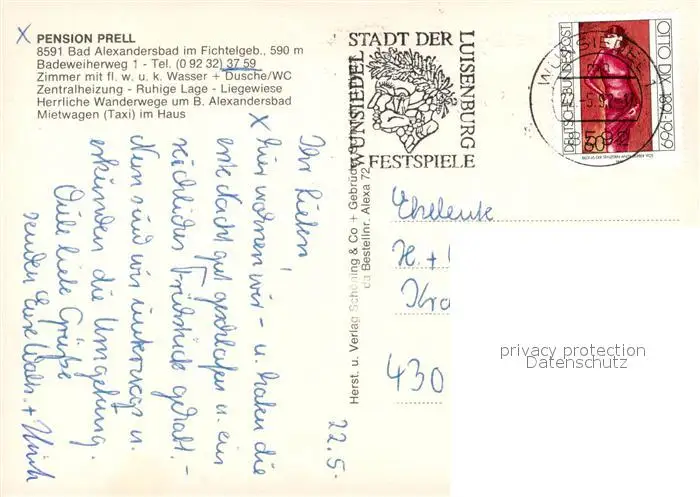 PENSION PRELL
8591 Bad Alexandersbad im Fichtelgeb., 590 m
Badeweiherweg 1 - Tel. (0 92 32) 37 59
Zimmer mit fl. w. u. k. Wasser + Dusche/WC
Zentralheizung - Ruhige Lage - Liegewiese
Herrliche Wanderwege um B. Alexandersbad
Mietwagen (Taxi) im Haus
22.5.
Ihr Lieben!
X hier wohnen wir - u. haben die
erste Nacht gut geschlafen u. ein
reichliches Frühstück gehabt. -
Nun sind wir unterwegs u.
erkunden die Umgebung.
Viele liebe Grüße
senden Eure + Ulrich
Herst. u. Verlag Schöning & Co + Gebrüder
Bestellnr. Alexa 72
STADT DER
LUISENBURG
FESTSPIELE
WUNSIEDEL
WUNSIEDEL 1
DEUTSCHE BUNDESPOST
60
OTTO DIX 1891-1969
Eheleute
H. +
430
privacy protection
Datenschutz